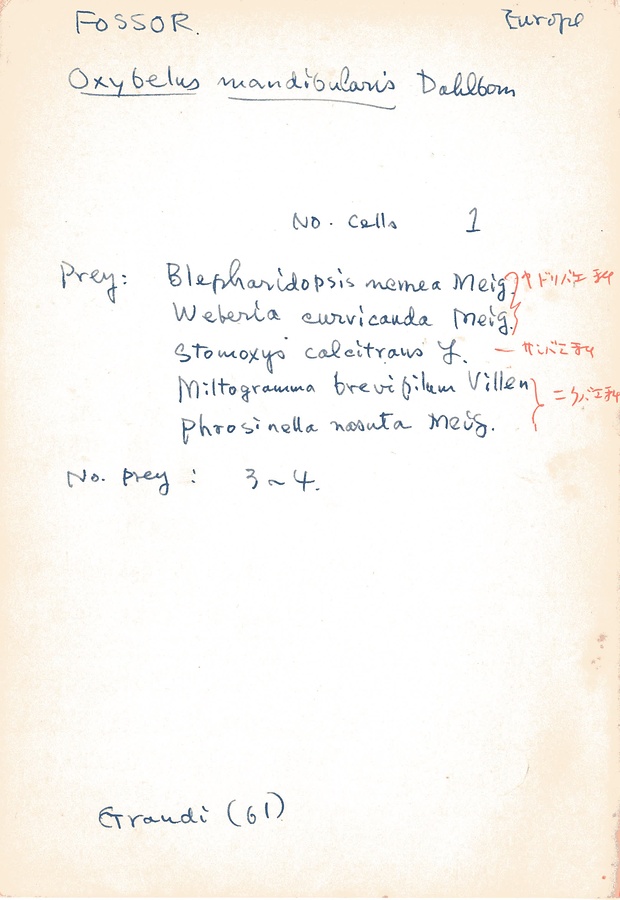 FOSSOR. Europe
Oxybelus mandibularis Dahlbom
No. cells 1
Prey: Blepharidopsis nemea Meig. ヤドリバエ科
Weberia curvicauda Meig.
Stomoxys calcitrans L. — サシバエ科
Miltogramma brevipilum Villen ニクバエ科
Phrosinella nasuta Meig.
No. prey : 3~4.
Grandi (61)